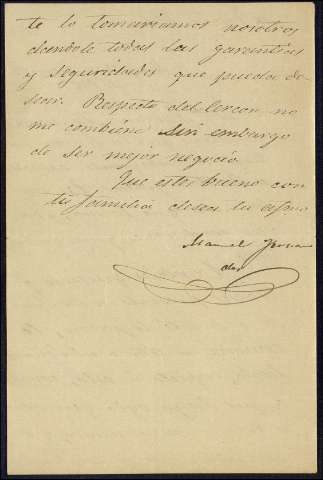 te lo tomariamos nosotros
dandole todas las garantias
y seguridades que pueda de-
sear. Respecto del lercon no
me combiene sin embargo
de ser mejor negocio
Que estes bueno con
tu familia desea tu afmo
Manuel